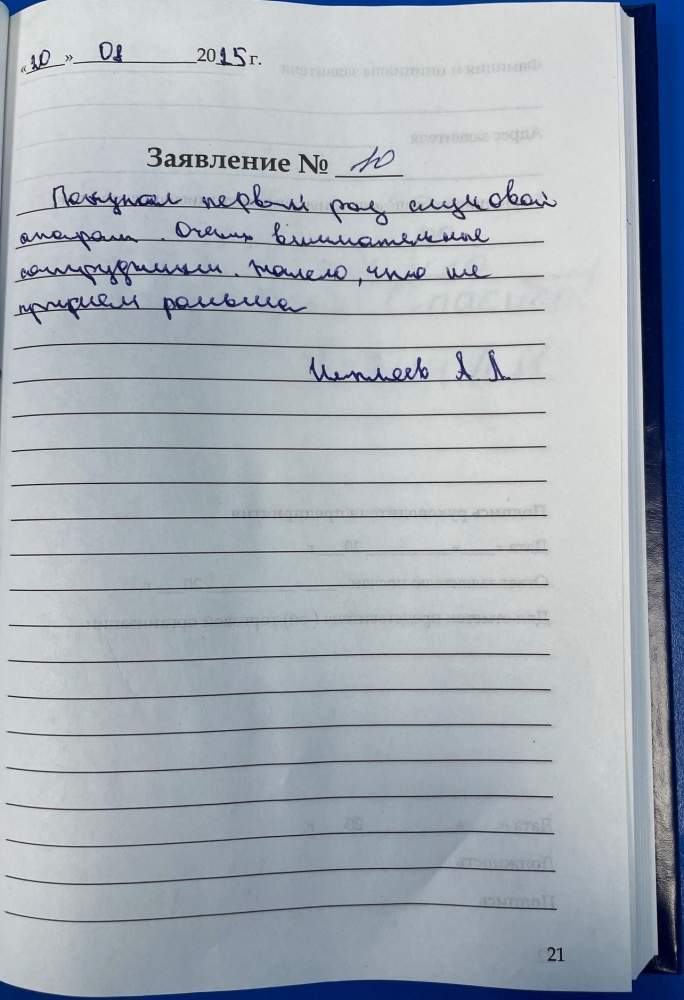 «10» 01 2025 г.
Заявление № 10
Покупал первый раз слуховой
аппарат. Очень внимательные
сотрудники. Жалею, что не
пришел раньше
А. А.
21